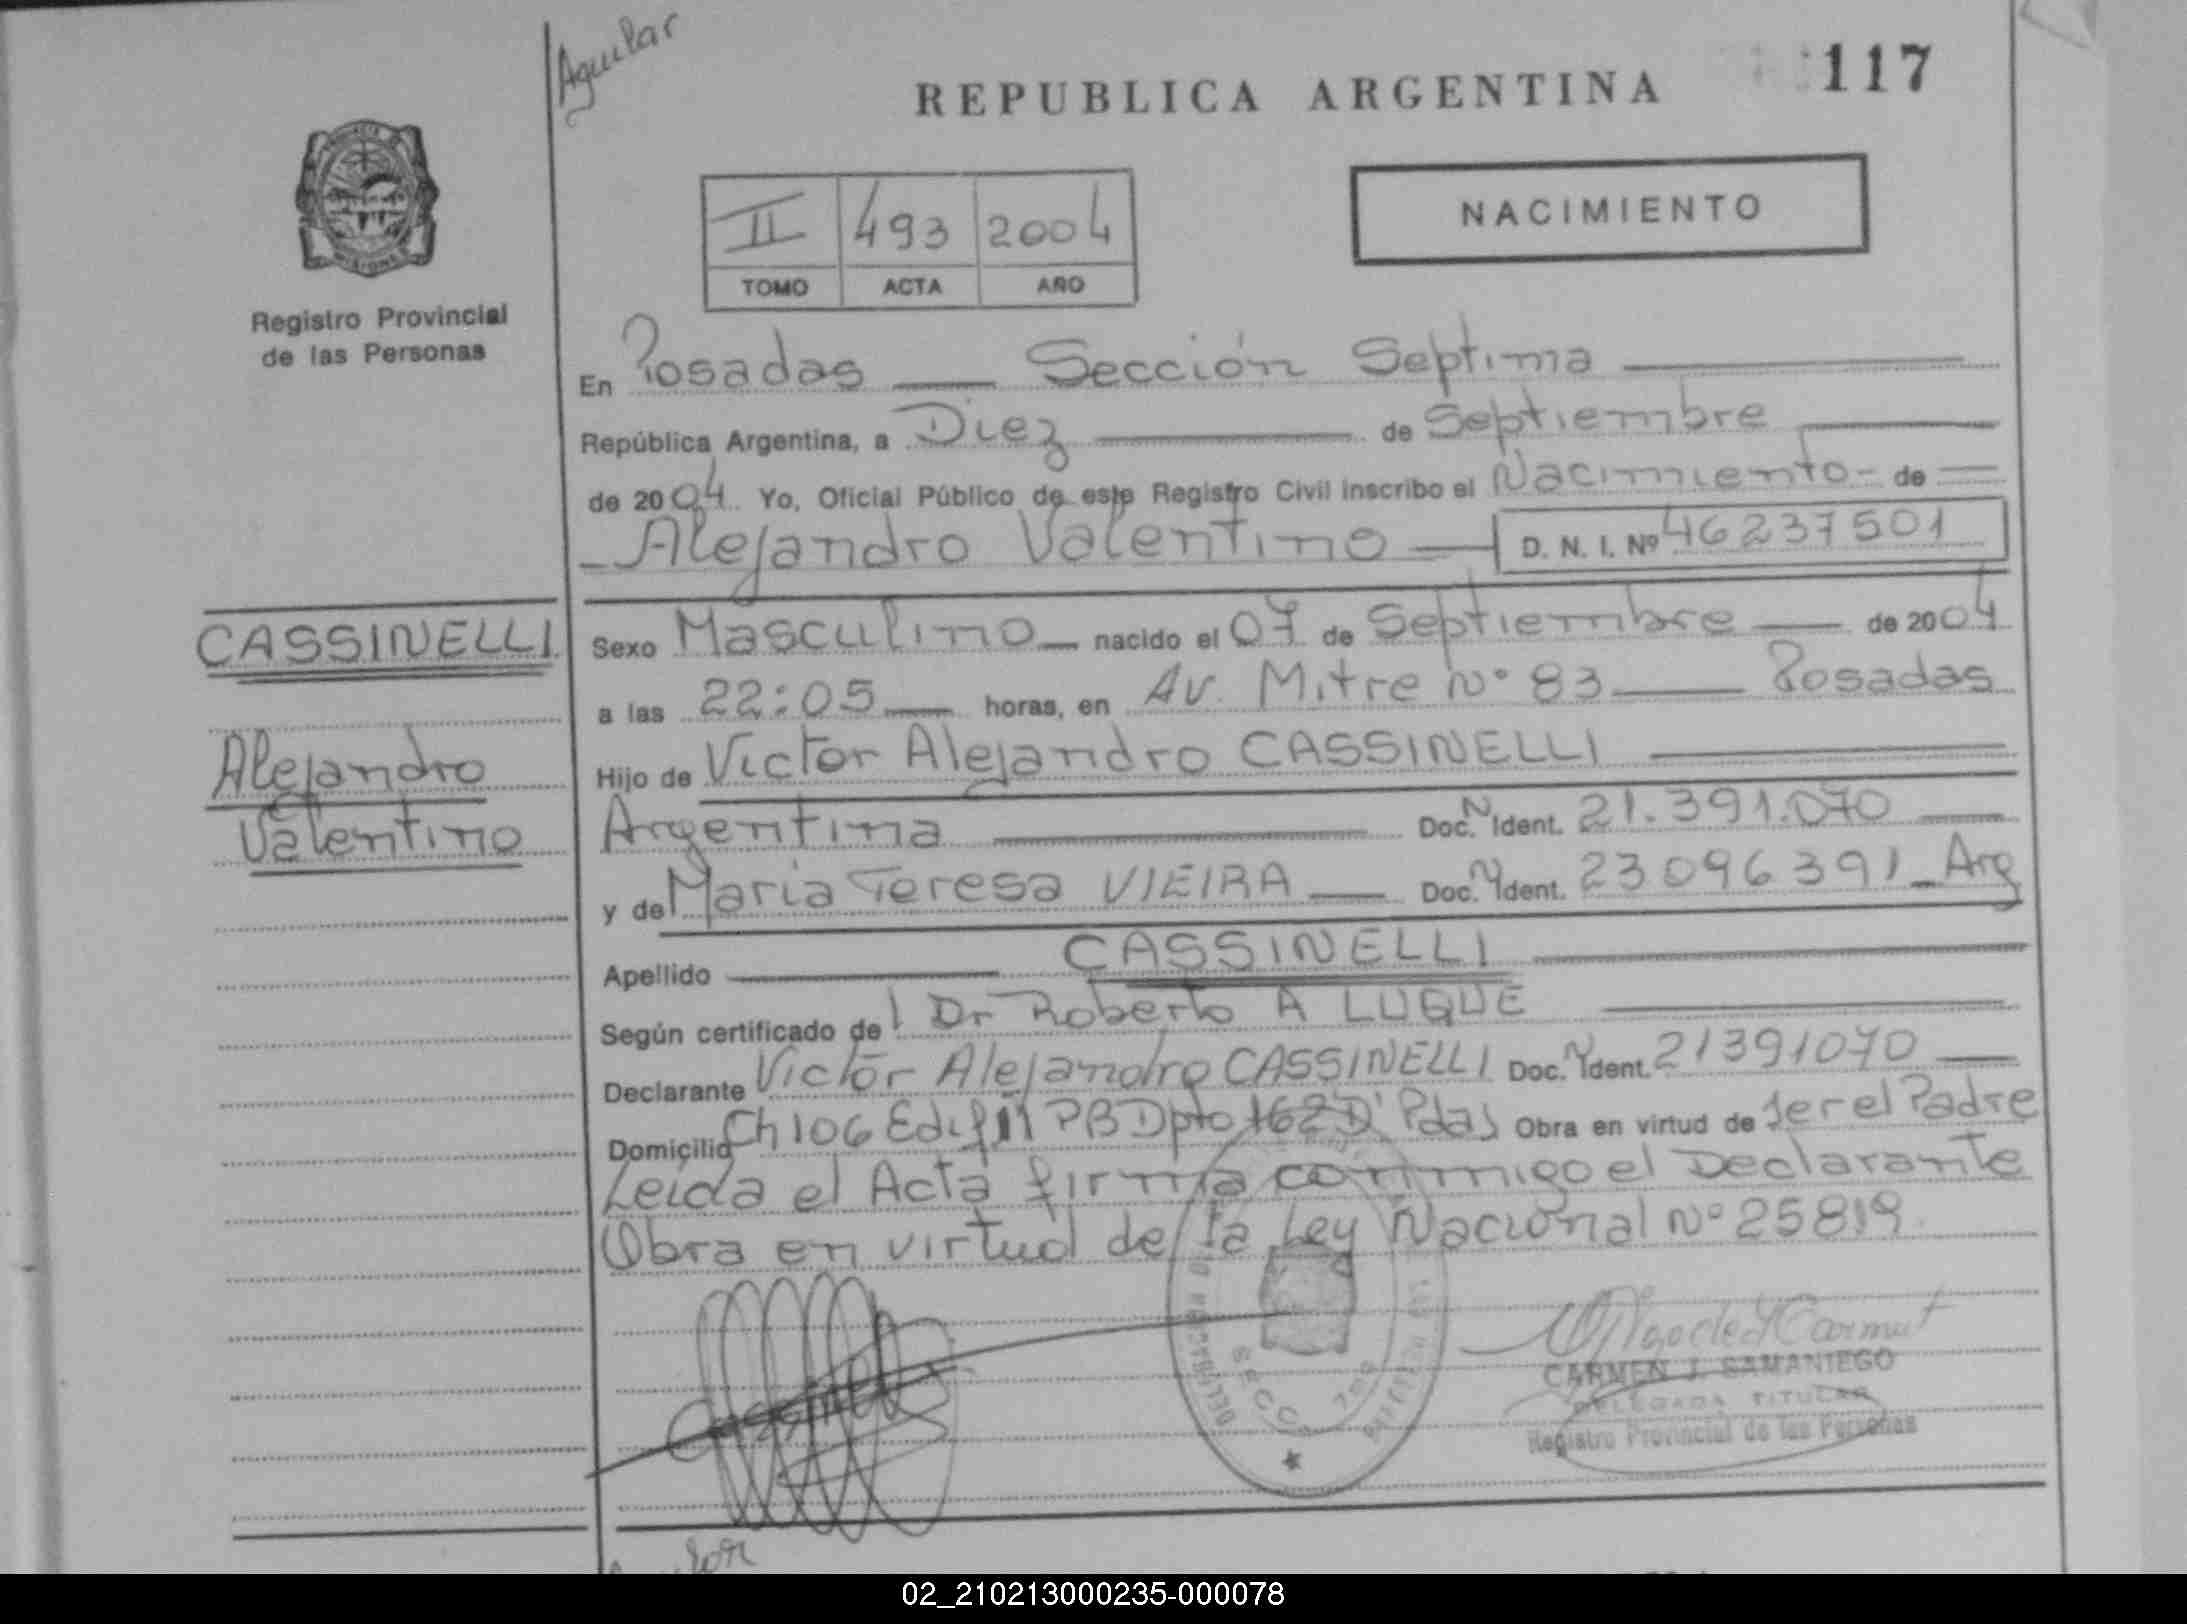 Aguilar
REPUBLICA ARGENTINA
117
MISIONES
Registro Provincial
de las Personas
II 493 2004
TOMO ACTA AÑO
NACIMIENTO
En Posadas Sección Septima
República Argentina, a Diez de Septiembre
de 2004. Yo, Oficial Público de este Registro Civil inscribo el Nacimiento - de
Alejandro Valentino D. N. I. Nº 46237501
CASSINELLI
Alejandro
Valentino
Sexo Masculino nacido el 07 de Septiembre de 2004
a las 22:05 horas, en Av. Mitre Nº 83 Posadas
Hijo de Victor Alejandro CASSINELLI
Argentina Doc. N Ident. 21.391.070
y de Maria Teresa VIEIRA Doc. N Ident. 23096391 _ Arg
Apellido CASSINELLI
Según certificado del Dr Roberto A LUQUE
Declarante Victor Alejandro CASSINELLI Doc. N Ident. 21391070
Domicilio Ch 106 Edif 11 PB Dpto 162 D' Pdas Obra en virtud de Ser el Padre
Leida el Acta firma conmigo el Declarante
Obra en virtud de la Ley Nacional Nº 25819
SECC. 7ma
CARMEN J. SAMANIEGO
DELEGADA TITULAR
Registro Provincial de las Personas
02_210213000235-000078